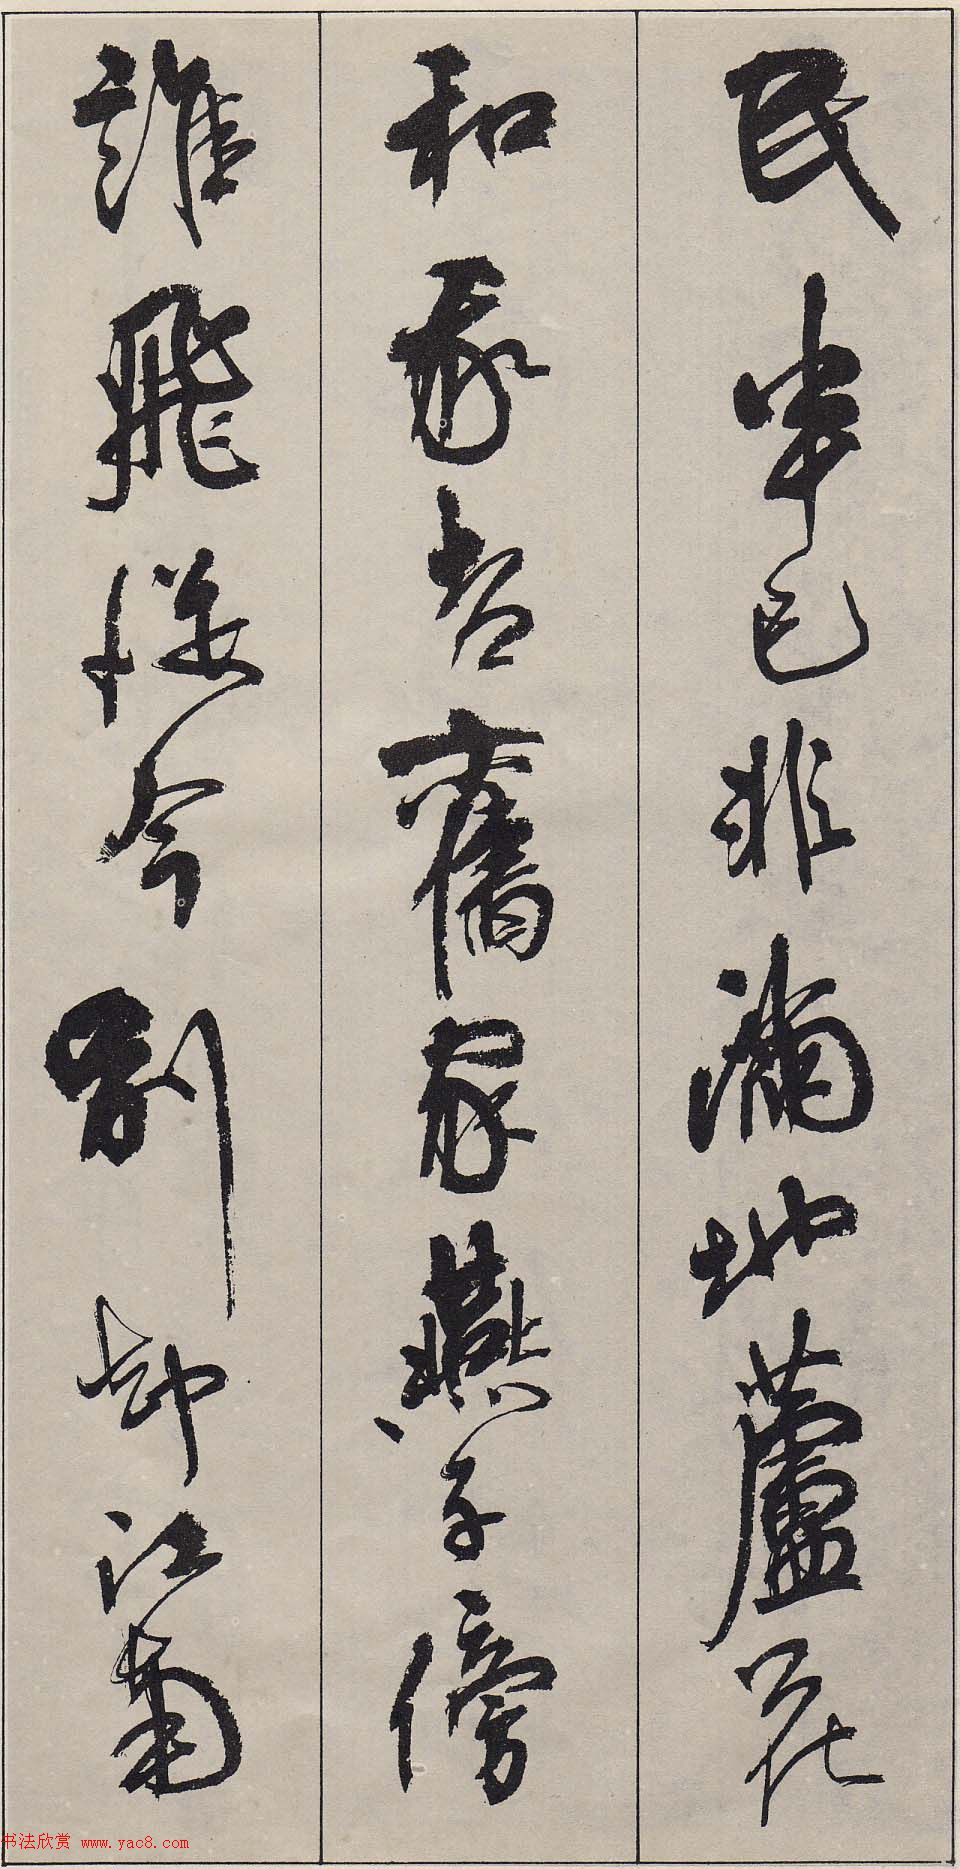 民半已非滿地蘆花
和我老舊家燕子傍
誰飛從今別却江南
书法欣赏 www.yac8.com